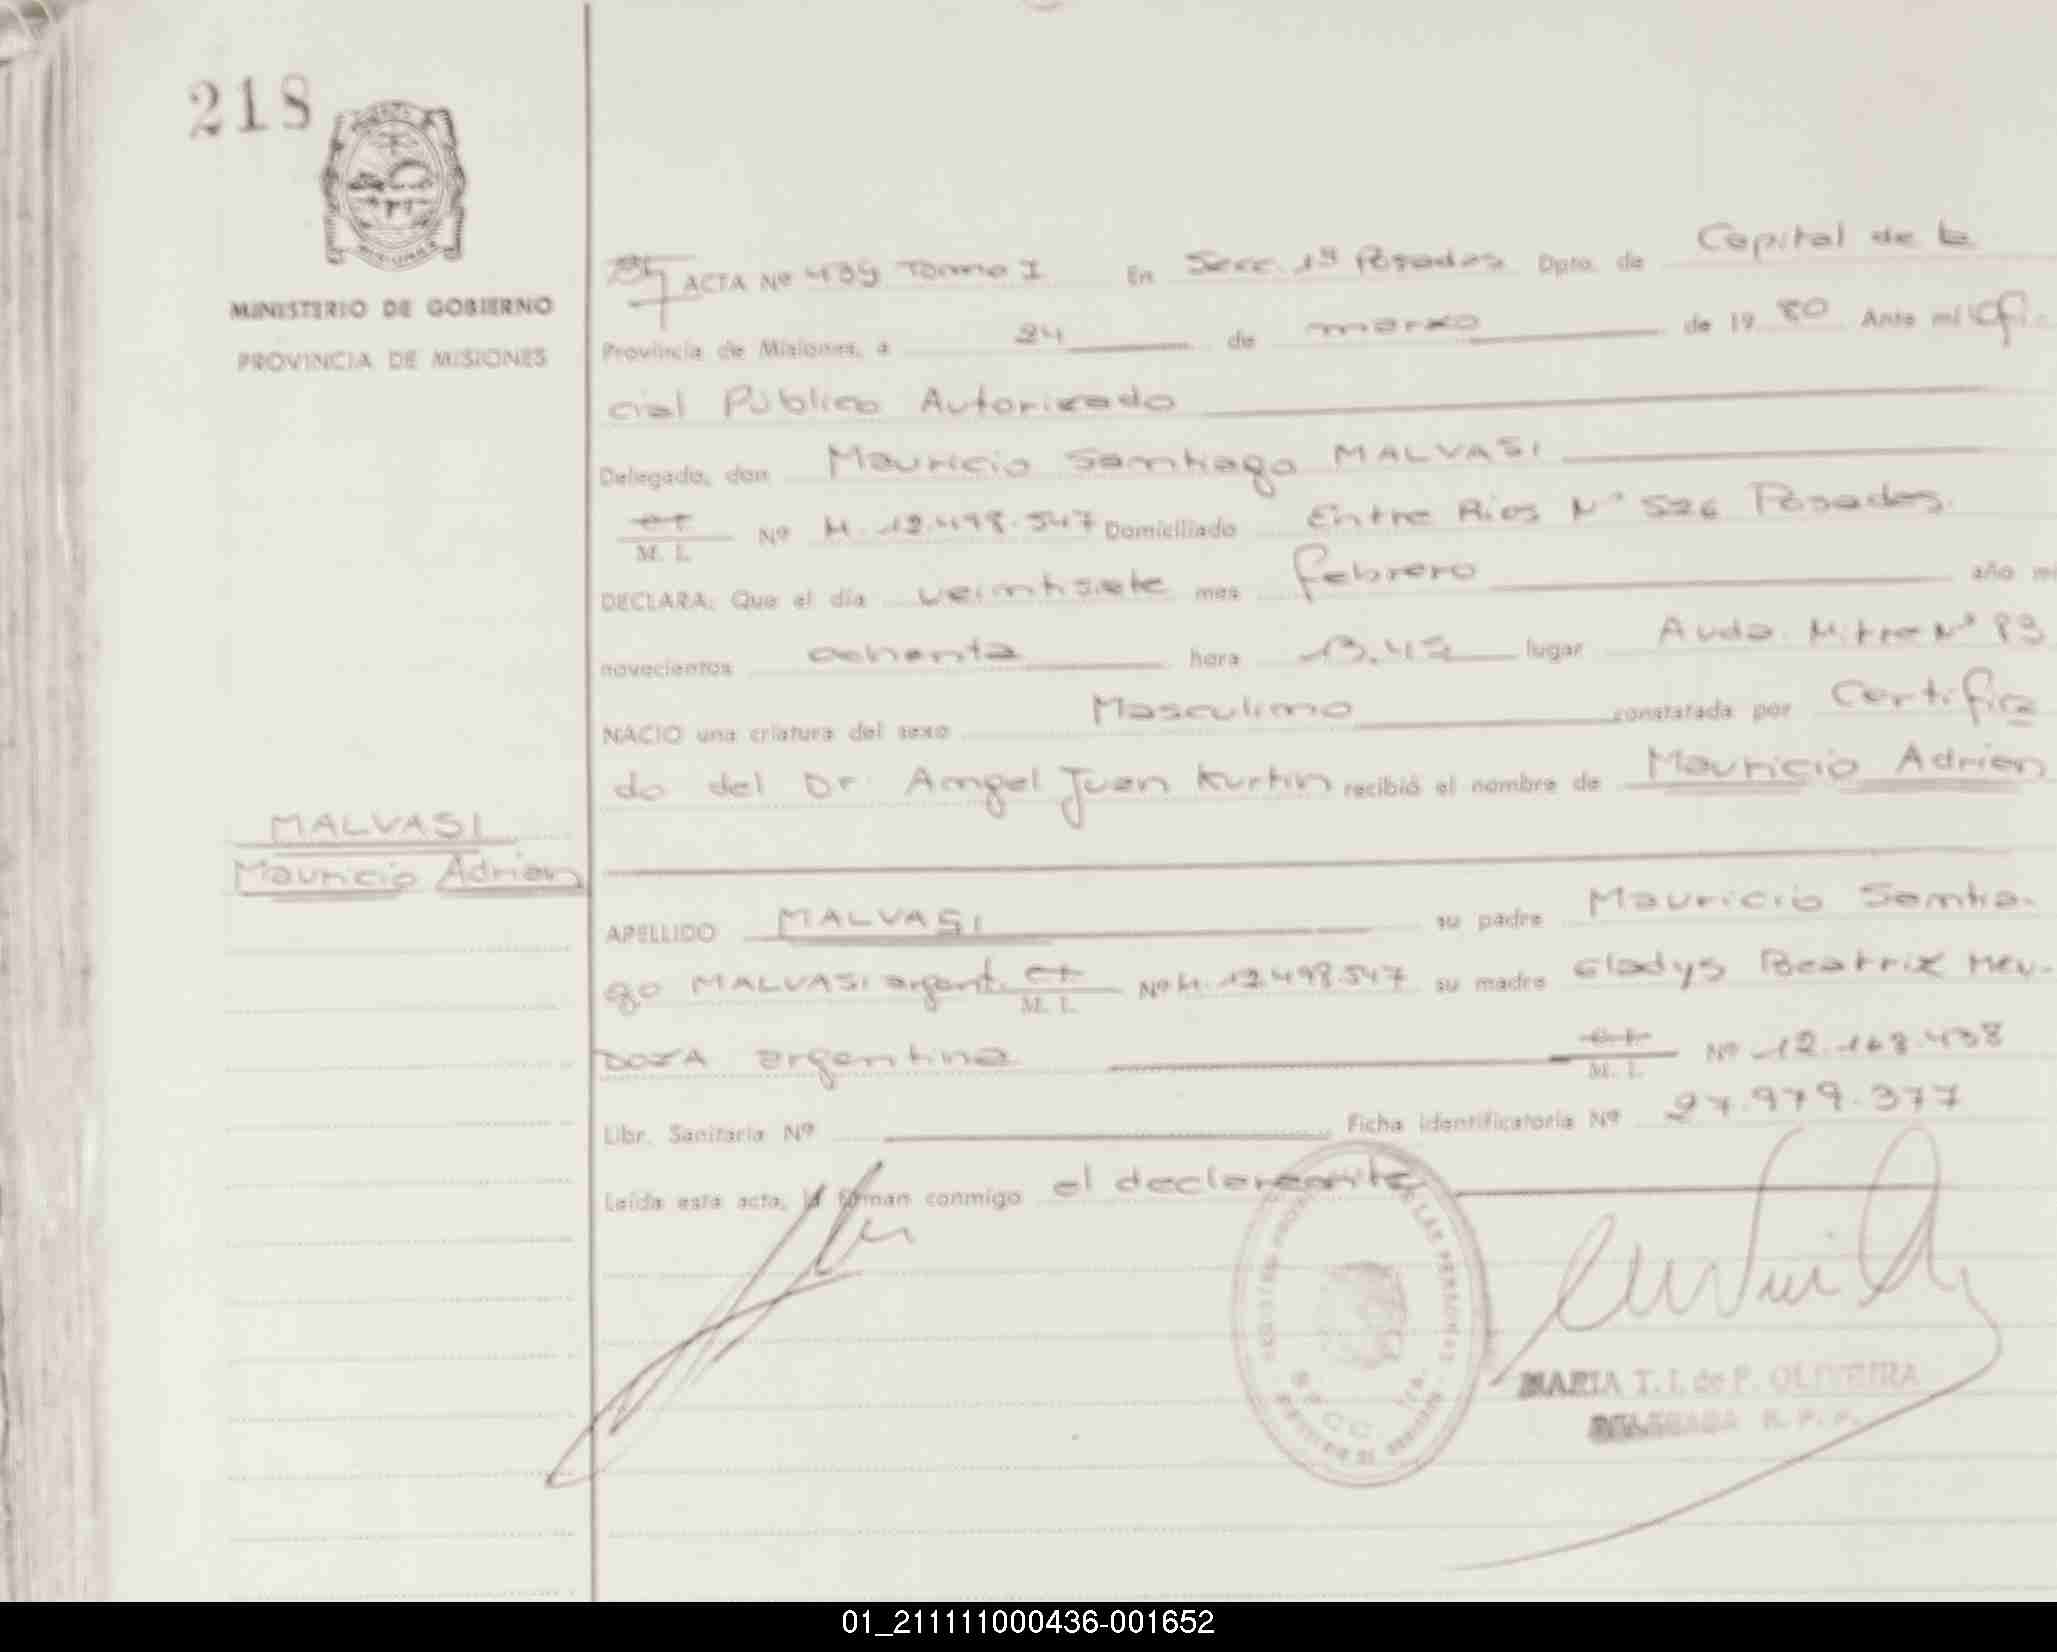 218
MINISTERIO DE GOBIERNO
PROVINCIA DE MISIONES
ACTA Nº 439 Tomo I En Secc. 1ª Posadas Dpto. de Capital de la
Provincia de Misiones, a 24 de marzo de 19 80 Ante mi Ofi-
cial Público Autorizado
Delegado, don Mauricio Santiago MALVASI
M. I. Nº M. 12.498.547 Domiciliado Entre Rios Nº 526 Posadas.
DECLARA: Que el día veintisiete mes febrero año mi
novecientos ochenta hora 13.45 lugar Avda. Mitre Nº 83
NACIO una criatura del sexo Masculino constatada por Certifica
do del Dr. Angel Juan Kurtin recibió el nombre de Mauricio Adrian
MALVASI
Mauricio Adrian
APELLIDO MALVASI su padre Mauricio Santia-
go MALVASI argent. M. I. Nº M. 12.498.547 su madre Gladys Beatrix Men-
DOZA argentina M. I. Nº 12.168.438
Libr. Sanitaria Nº Ficha identificatoria Nº 27.979.377
Leída esta acta, la firman conmigo el declarante
MARIA T. I. de P. OLIVEIRA
DELEGADA R. P. P.
01_211111000436-001652